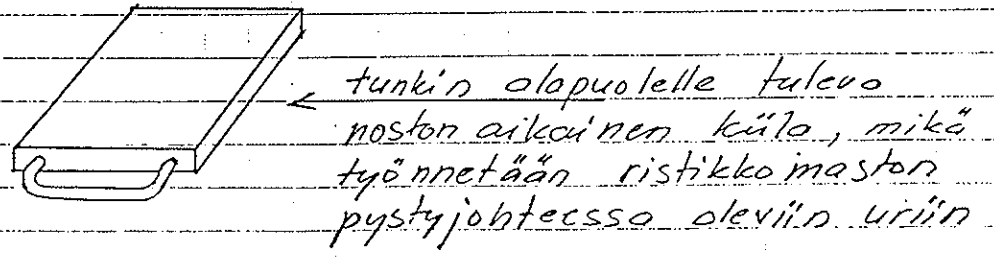 tunkin alapuolelle tuleva
noston aikainen kiila, mikä
työnnetään ristikkomaston
pystyjohteessa oleviin uriin